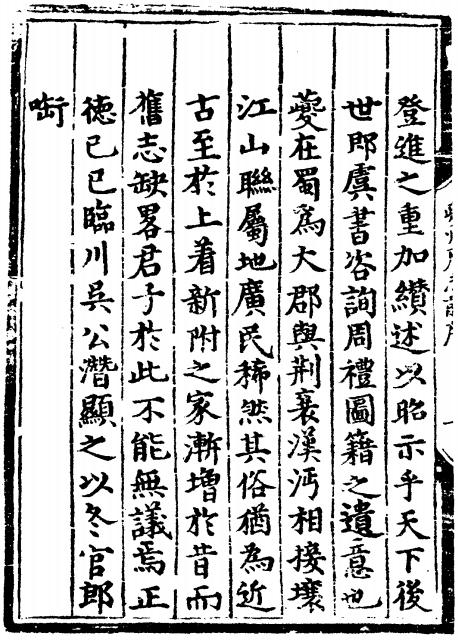 登進之重加纘述以昭示乎天下後
世即虞書咨詢周禮圖籍之遺意也
夔在蜀為大郡與荆襄漢沔相接壤
江山聯屬地廣民稀然其俗猶為近
古至於上着新附之家漸增於昔而
舊志缺畧君子於此不能無議焉正
德己巳臨川吳公潛顯之以冬官郎